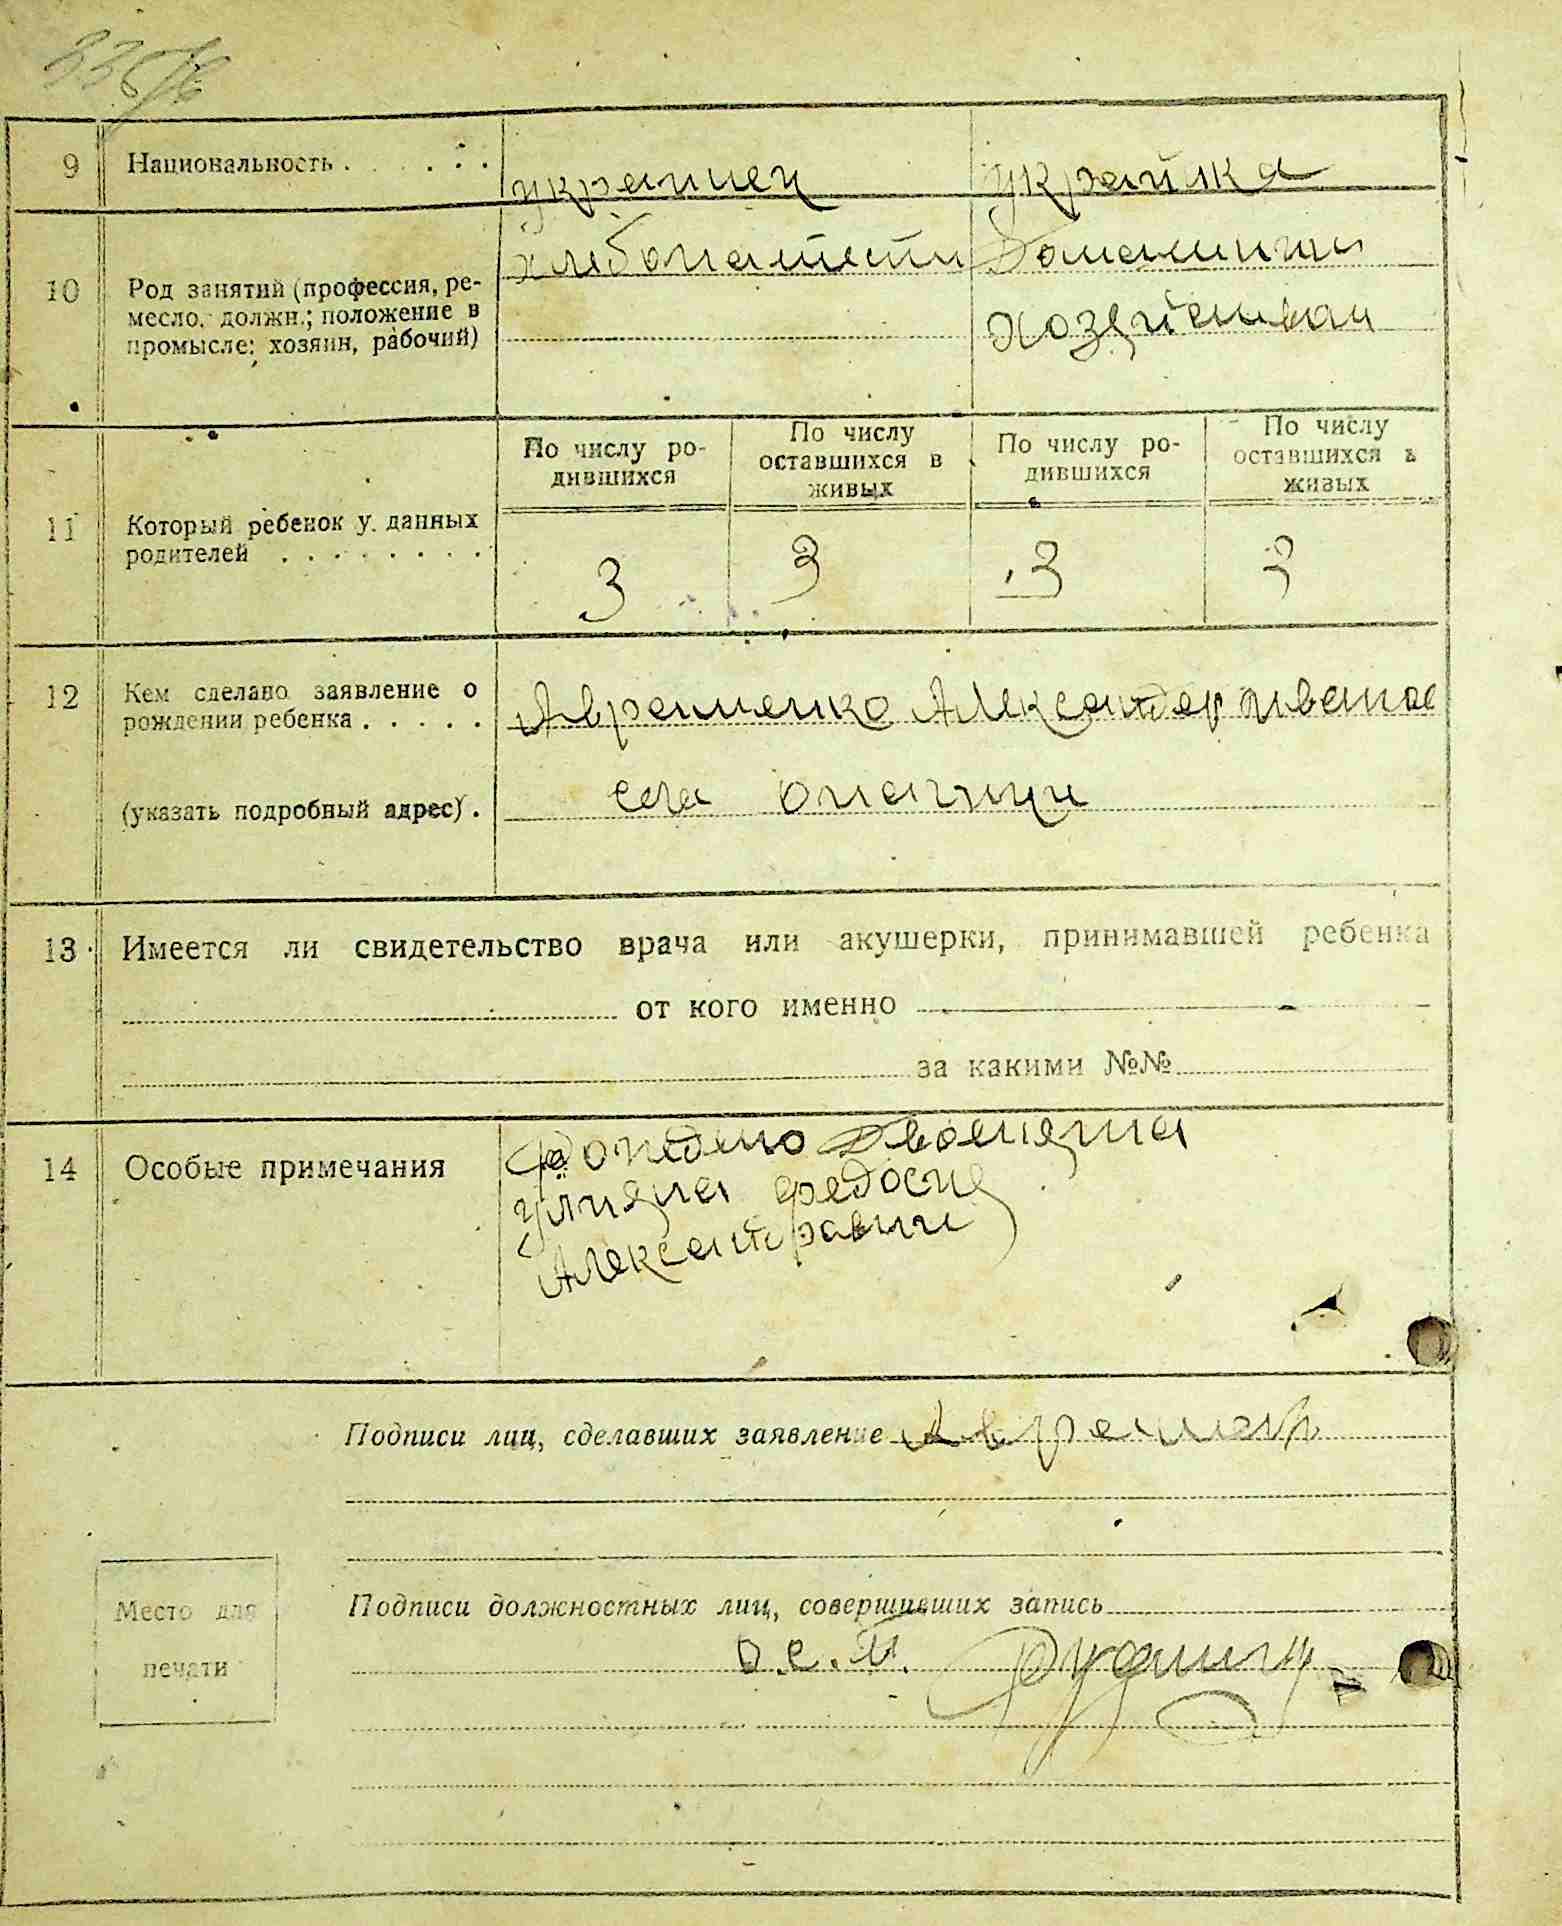 9 Национальность . . . . . . украинец украинка
10 Род занятий (профессия, ре-
месло, должн.; положение в
промысле: хозяин, рабочий)
Домашним
хозяйством
По числу ро-
дившихся
По числу
оставшихся в
живых
По числу ро-
дившихся
По числу
оставшихся в
живых
11 Который ребенок у данных
родителей . . . . . . . .
3 3 3 3
12 Кем сделано заявление о
рождении ребенка . . . . .
Авраменко Александер
(указать подробный адрес) .
села
13 Имеется ли свидетельство врача или акушерки, принимавшей ребенка
от кого именно
за какими №№
14 Особые примечания
Рождено двойнята
Улияна Федосия
Подписи лиц, сделавших заявление
Место для
печати
Подписи должностных лиц, совершивших запись